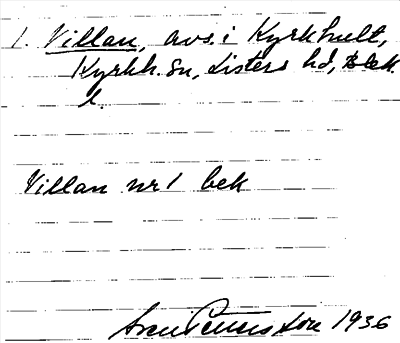 1. Villan, avs. i Kyrkhult,
Kyrkh. sn, Listers hd, Blek.
l.
Villan nr 1 bek
Sven Petersson 1936